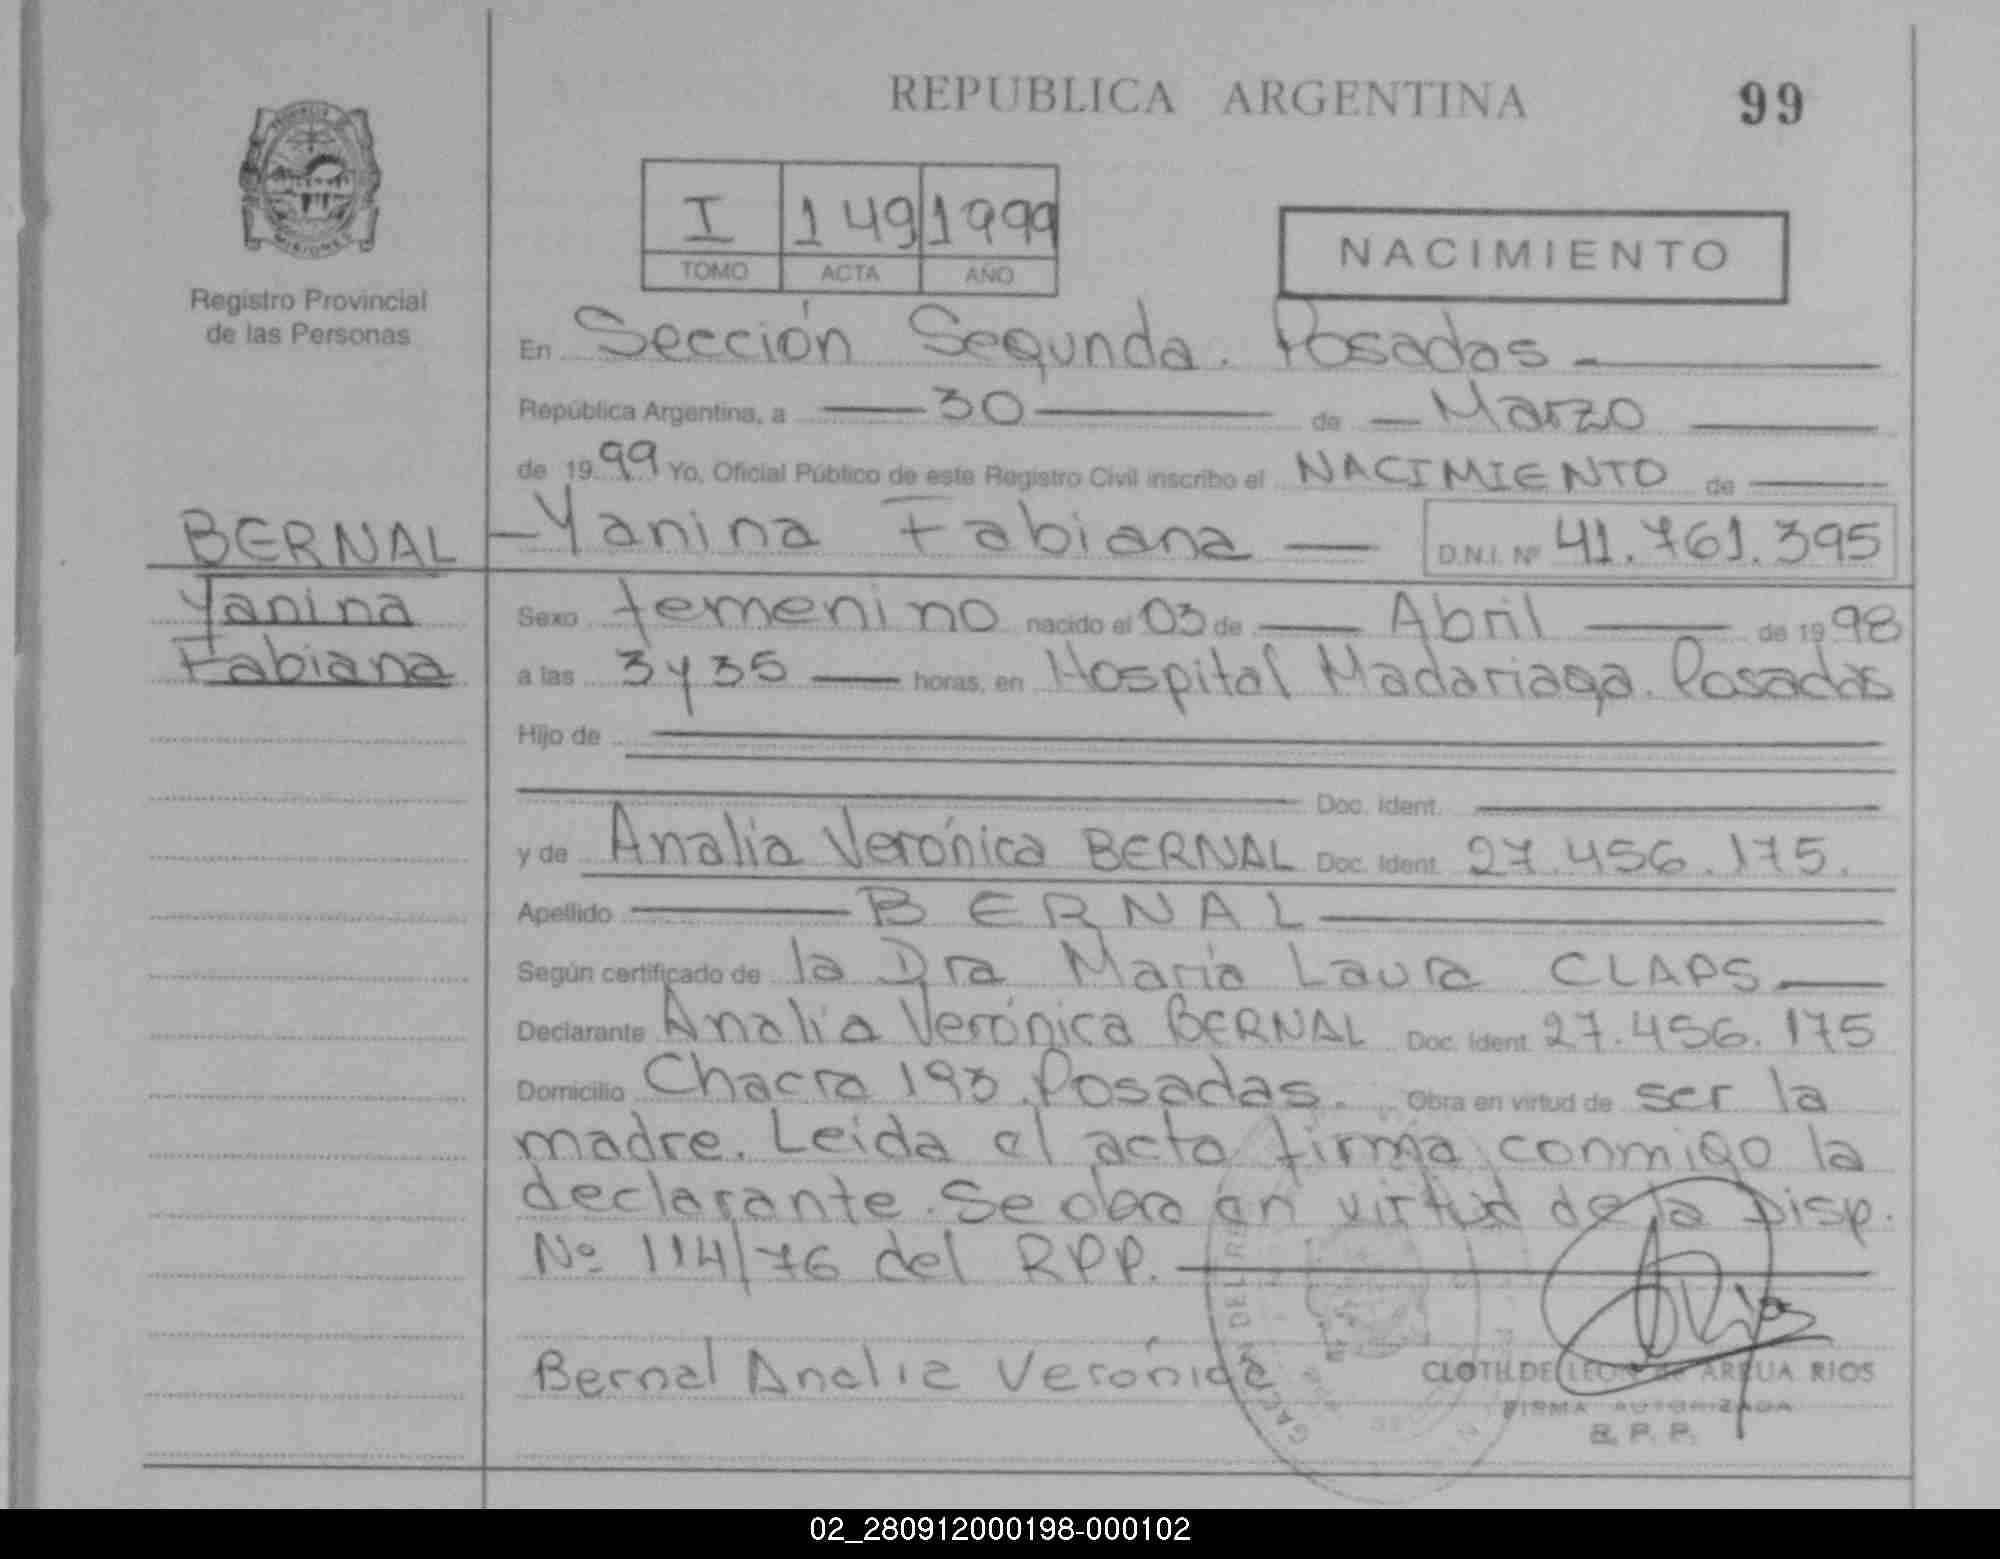 REPUBLICA ARGENTINA 99
MISIONES
I 149 1999
TOMO ACTA AÑO
NACIMIENTO
Registro Provincial
de las Personas
En Sección Segunda. Posadas
República Argentina, a 30 de Marzo
de 1999 Yo, Oficial Público de este Registro Civil inscribo el NACIMIENTO de
BERNAL
Yanina
Fabiana
Yanina Fabiana D.N.I. Nº 41.761.395
Sexo femenino nacido el 03 de Abril de 1998
a las 3 y 35 horas, en Hospital Madariaga. Posadas
Hijo de
Doc. Ident.
y de Analía Verónica BERNAL Doc. Ident. 27.456.175.
Apellido BERNAL
Según certificado de la Dra María Laura CLAPS
Declarante Analía Verónica BERNAL Doc. Ident. 27.456.175
Domicilio Chacra 193. Posadas. Obra en virtud de ser la
madre. Leida el acta firma conmigo la
declarante. Se obra en virtud de la Disp.
Nº 114/76 del RPP.
Bernal Analia Verónica
CLOTILDE LEON de ARRUA RIOS
FIRMA AUTORIZADA
R. P. P.
02_280912000198-000102